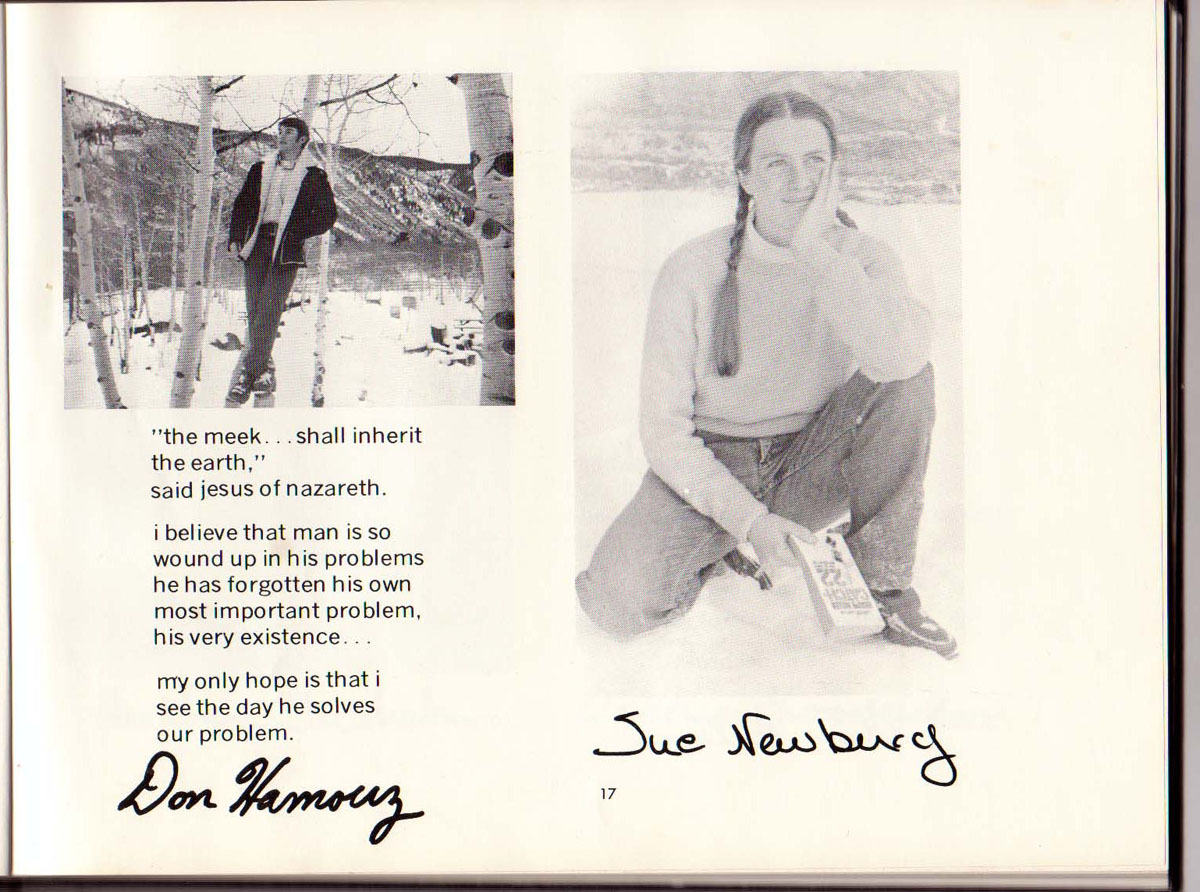 "the meek...shall inherit
the earth,"
said jesus of nazareth.
i believe that man is so
wound up in his problems
he has forgotten his own
most important problem,
his very existence...
my only hope is that i
see the day he solves
our problem.
Don Hamouz
CATCH-
22
Sue Newburg
17